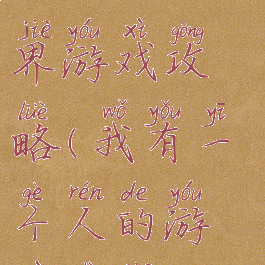 jiè yóu xì gōng
界游戏攻
lüè wǒ yǒu yī
略(我有一
gè rén de yóu
个人的游